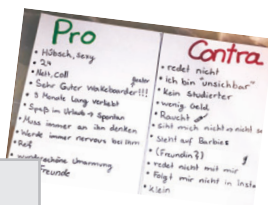 Pro
• Hübsch, sexy
• 24
• Nett, coll
• Sehr Guter Wakeboarder!!!
• 9 Monate lang verliebt
• Spaß im Urlaub → Spanien
• Muss immer an ihn denken
• Werde immer nervös bei ihm
• Reif
Umarmung
Freunde
Contra
• redet nicht
• Ich bin "unsichtbar"
• Kein Studierter
• wenig Geld
• Raucht
• sieht mich nicht
• Steht auf Barbies
• (Freundin?)
• redet nicht mit mir
• Folgt mir nicht in Insta
• klein